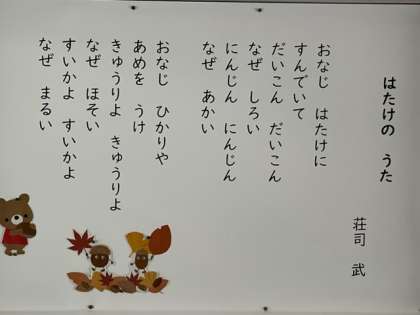 はたけの　うた
荘司　武
おなじ　はたけに
すんでいて
だいこん　だいこん
なぜ　しろい
にんじん　にんじん
なぜ　あかい
おなじ　ひかりや
あめを　うけ
きゅうりよ　きゅうりよ
なぜ　ほそい
すいかよ　すいかよ
なぜ　まるい